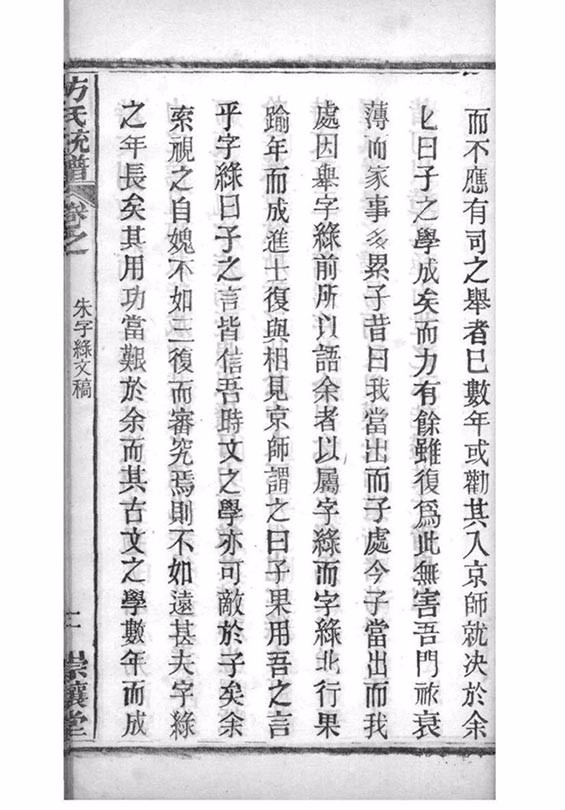 而不應有司之舉者已數年或勸其入京師就决於余
匕曰子之學成矣而力有餘雖復爲此無害吾門祚衰
薄而家事多累子昔曰我當出而子處今子當出而我
處因舉字綠前所以語余者以屬字綠而字綠北行果
踰年而成進士復與相見京師謂之曰子果用吾之言
乎字綠曰子之言皆信吾時文之學亦可敵於子矣余
索視之自媿不如三復而審究焉則不如遠甚夫字綠
之年長矣其用功當艱於余而其古文之學數年而成
方氏統譜 卷之
朱字綠文稿
三
崇讓堂